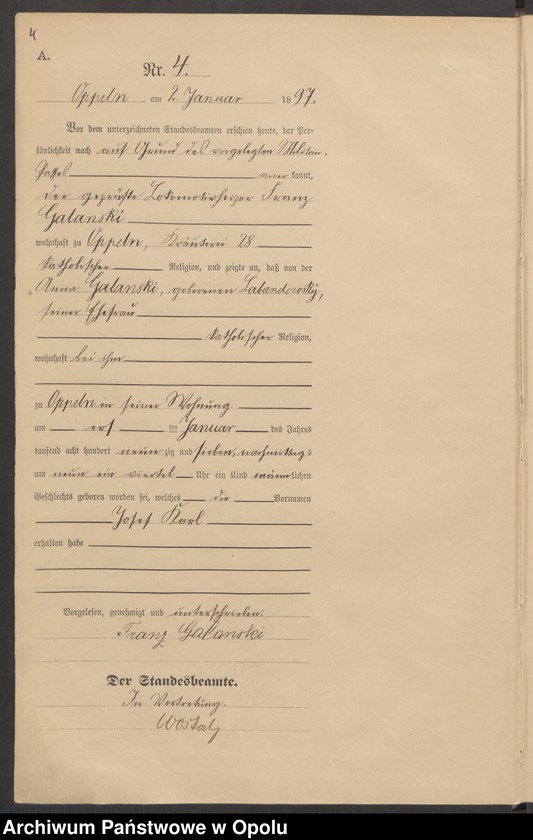 4
A.
Nr. 4.
Oppeln am 2. Januar 1897.
Vor dem unterzeichneten Standesbeamten erschien heute, der Per-
sönlichkeit nach auf Grund des vorgelegten Militär-
Passes anerkannt,
der geprüfte Lokomotivheizer Franz
Galanski
wohnhaft zu Oppeln, Kräuterei 28
katholischer Religion, und zeigte an, daß von der
Anna Galanski, geborenen Labandowsky,
seiner Ehefrau
katholischer Religion,
wohnhaft bei ihm
zu Oppeln in seiner Wohnung
am ersten Januar des Jahres
tausend acht hundert neunzig und sieben, nachmittags
um neun ein viertel Uhr ein Kind männlichen
Geschlechts geboren worden sei, welches die Vornamen
Josef Karl
erhalten habe
Vorgelesen, genehmigt und unterschrieben.
Franz Galanski
Der Standesbeamte.
In Vertretung.
Archiwum Państwowe w Opolu